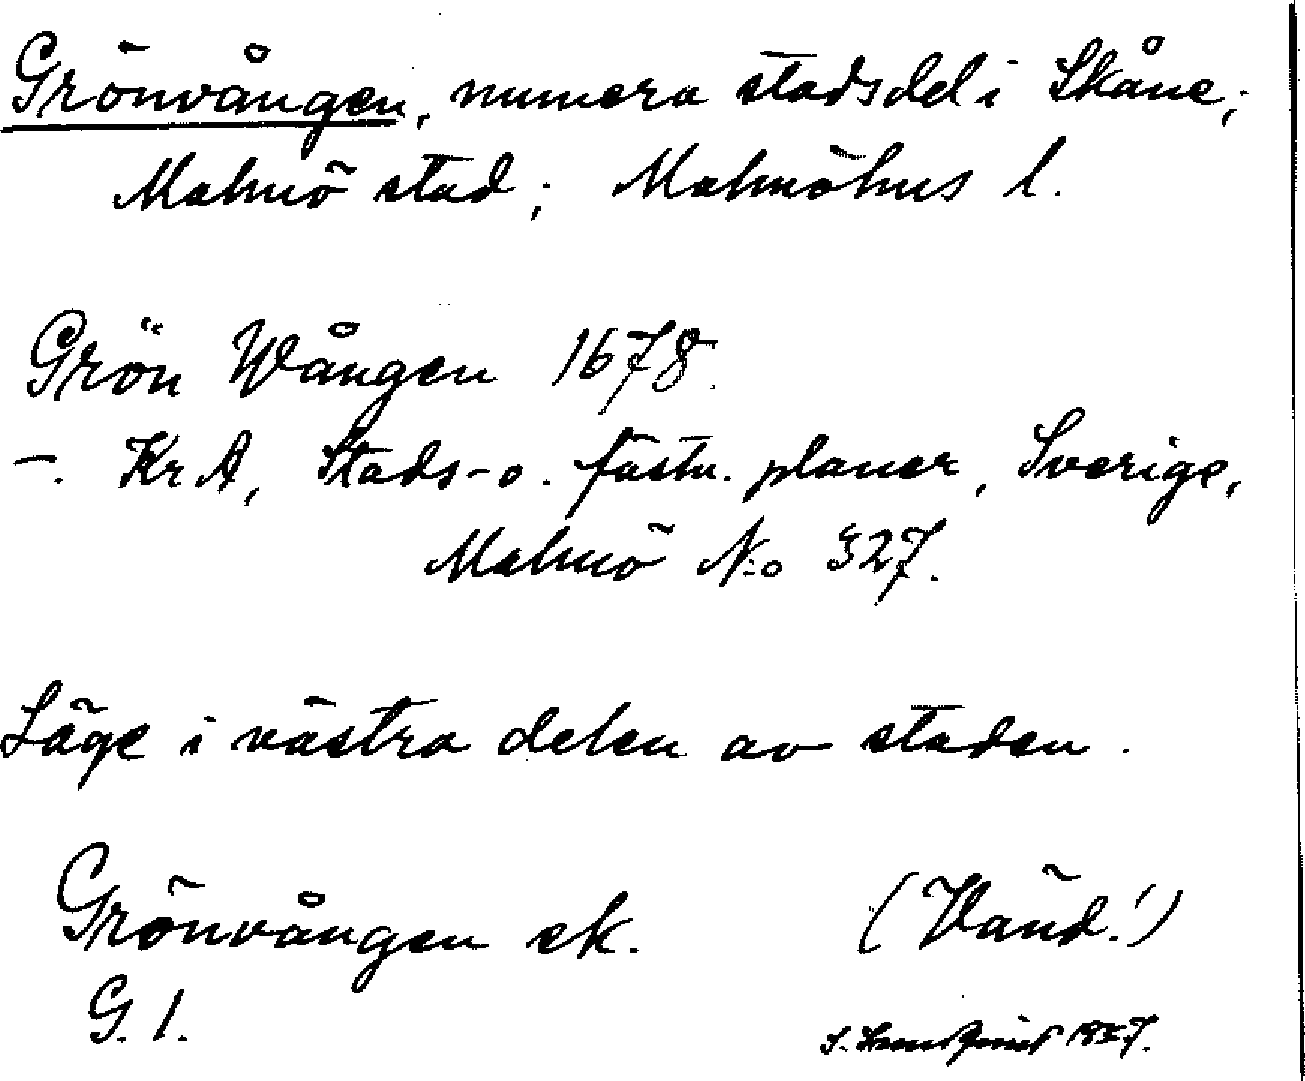 Grönvången, numera stadsdel i Skåne;
Malmö stad; Malmöhus l.
Grön Wången 1678.
–. KrA, Stads- o. fästn. planer, Sverige,
Malmö N:o 327.
Läge i västra delen av staden.
Grönvången ek.
G. 1.
(Vänd!)
S. 1957.